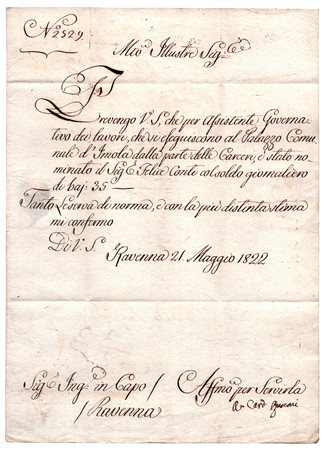 N.º 2529
Mco. Illustre Sig.re
Prevengo V. S. che per Assistente Governa-
tivo dei lavori, che si eseguiscono al Palazzo Comu-
nale d'Imola dalla parte delle Carceri, è stato no-
minato il Sig.e Felice Conte col soldo giornaliero
di baj: 35 —
Tanto Le serva di norma, e con la più distinta stima
mi confermo
Di V. S.
Ravenna 21 Maggio 1822
Sig.e Ing.e in Capo /
/ Ravenna
Affmo. per Servirla